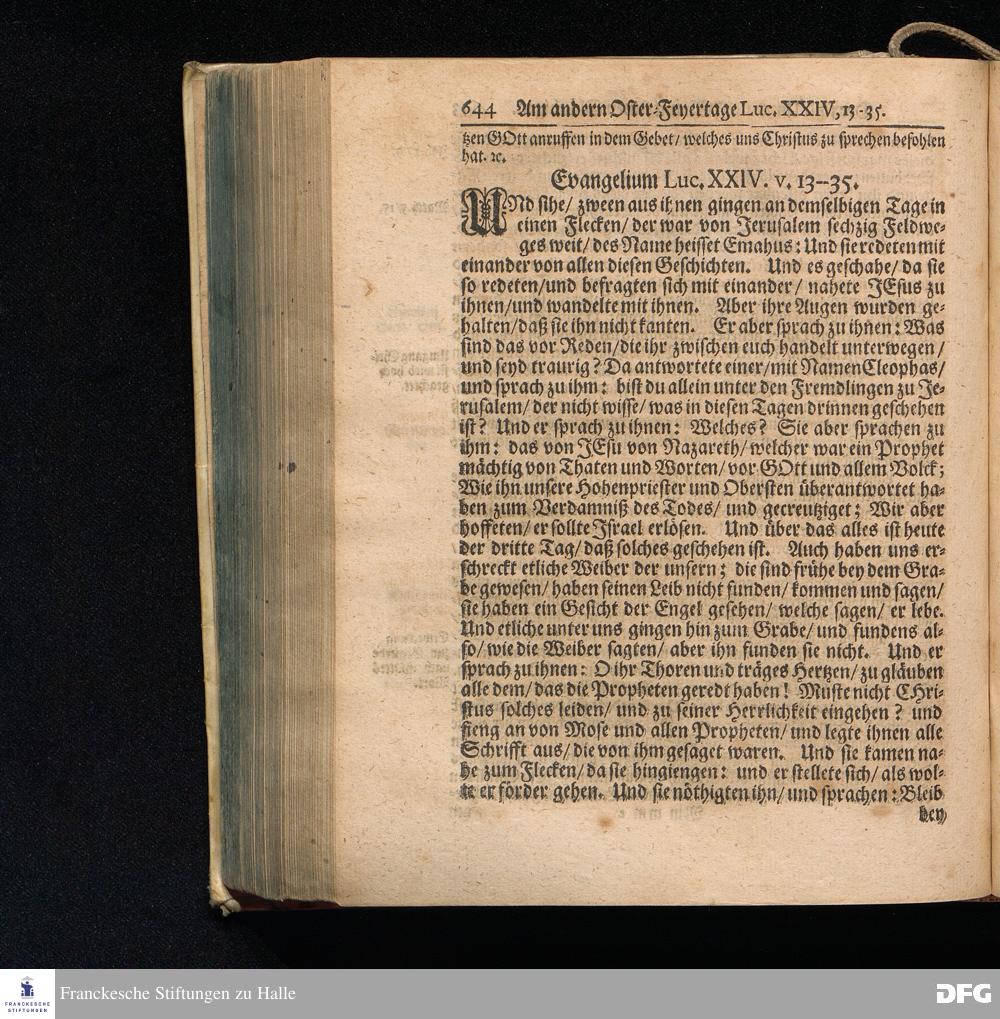 644 Am andern Oster-Feyertage Luc. XXIV, 13-35.
tzen GOtt anruffen in dem Gebet/ welches uns Christus zu sprechen befohlen
hat. ꝛc.
Evangelium Luc. XXIV. v. 13--35.
UNd sihe/ zween aus ihnen gingen an demselbigen Tage in
einen Flecken/ der war von Jerusalem sechzig Feldwe-
ges weit/ des Name heisset Emahus: Und sie redeten mit
einander von allen diesen Geschichten. Und es geschahe/ da sie
so redeten/und befragten sich mit einander/ nahete JEsus zu
ihnen/und wandelte mit ihnen. Aber ihre Augen wurden ge-
halten/daß sie ihn nicht kanten. Er aber sprach zu ihnen: Was
sind das vor Reden/die ihr zwischen euch handelt unterwegen/
und seyd traurig? Da antwortete einer/mit Namen Cleophas/
und sprach zu ihm: bist du allein unter den Fremdlingen zu Je-
rusalem/ der nicht wisse/ was in diesen Tagen drinnen geschehen
ist? Und er sprach zu ihnen: Welches? Sie aber sprachen zu
ihm: das von JEsu von Nazareth/ welcher war ein Prophet
mächtig von Thaten und Worten/ vor GOtt und allem Volck;
Wie ihn unsere Hohenpriester und Obersten überantwortet ha-
ben zum Verdamniß des Todes/ und gecreutziget; Wir aber
hoffeten/ er sollte Israel erlösen. Und über das alles ist heute
der dritte Tag/ daß solches geschehen ist. Auch haben uns er-
schreckt etliche Weiber der unsern; die sind frühe bey dem Gra-
be gewesen/ haben seinen Leib nicht funden/ kommen und sagen/
sie haben ein Gesicht der Engel gesehen/ welche sagen/ er lebe.
Und etliche unter uns gingen hin zum Grabe/ und fundens al-
so/ wie die Weiber sagten/ aber ihn funden sie nicht. Und er
sprach zu ihnen: O ihr Thoren und träges Hertzen/ zu gläuben
alle dem/ das die Propheten geredt haben! Muste nicht CHri-
stus solches leiden/ und zu seiner Herrlichkeit eingehen? und
fieng an von Mose und allen Propheten/ und legte ihnen alle
Schrifft aus/ die von ihm gesaget waren. Und sie kamen na-
he zum Flecken/ da sie hingiengen: und er stellete sich/ als wol-
te er förder gehen. Und sie nöthigten ihn/ und sprachen: Bleib
bey
FRANCKESCHE
STIFTUNGEN
Franckesche Stiftungen zu Halle
DFG